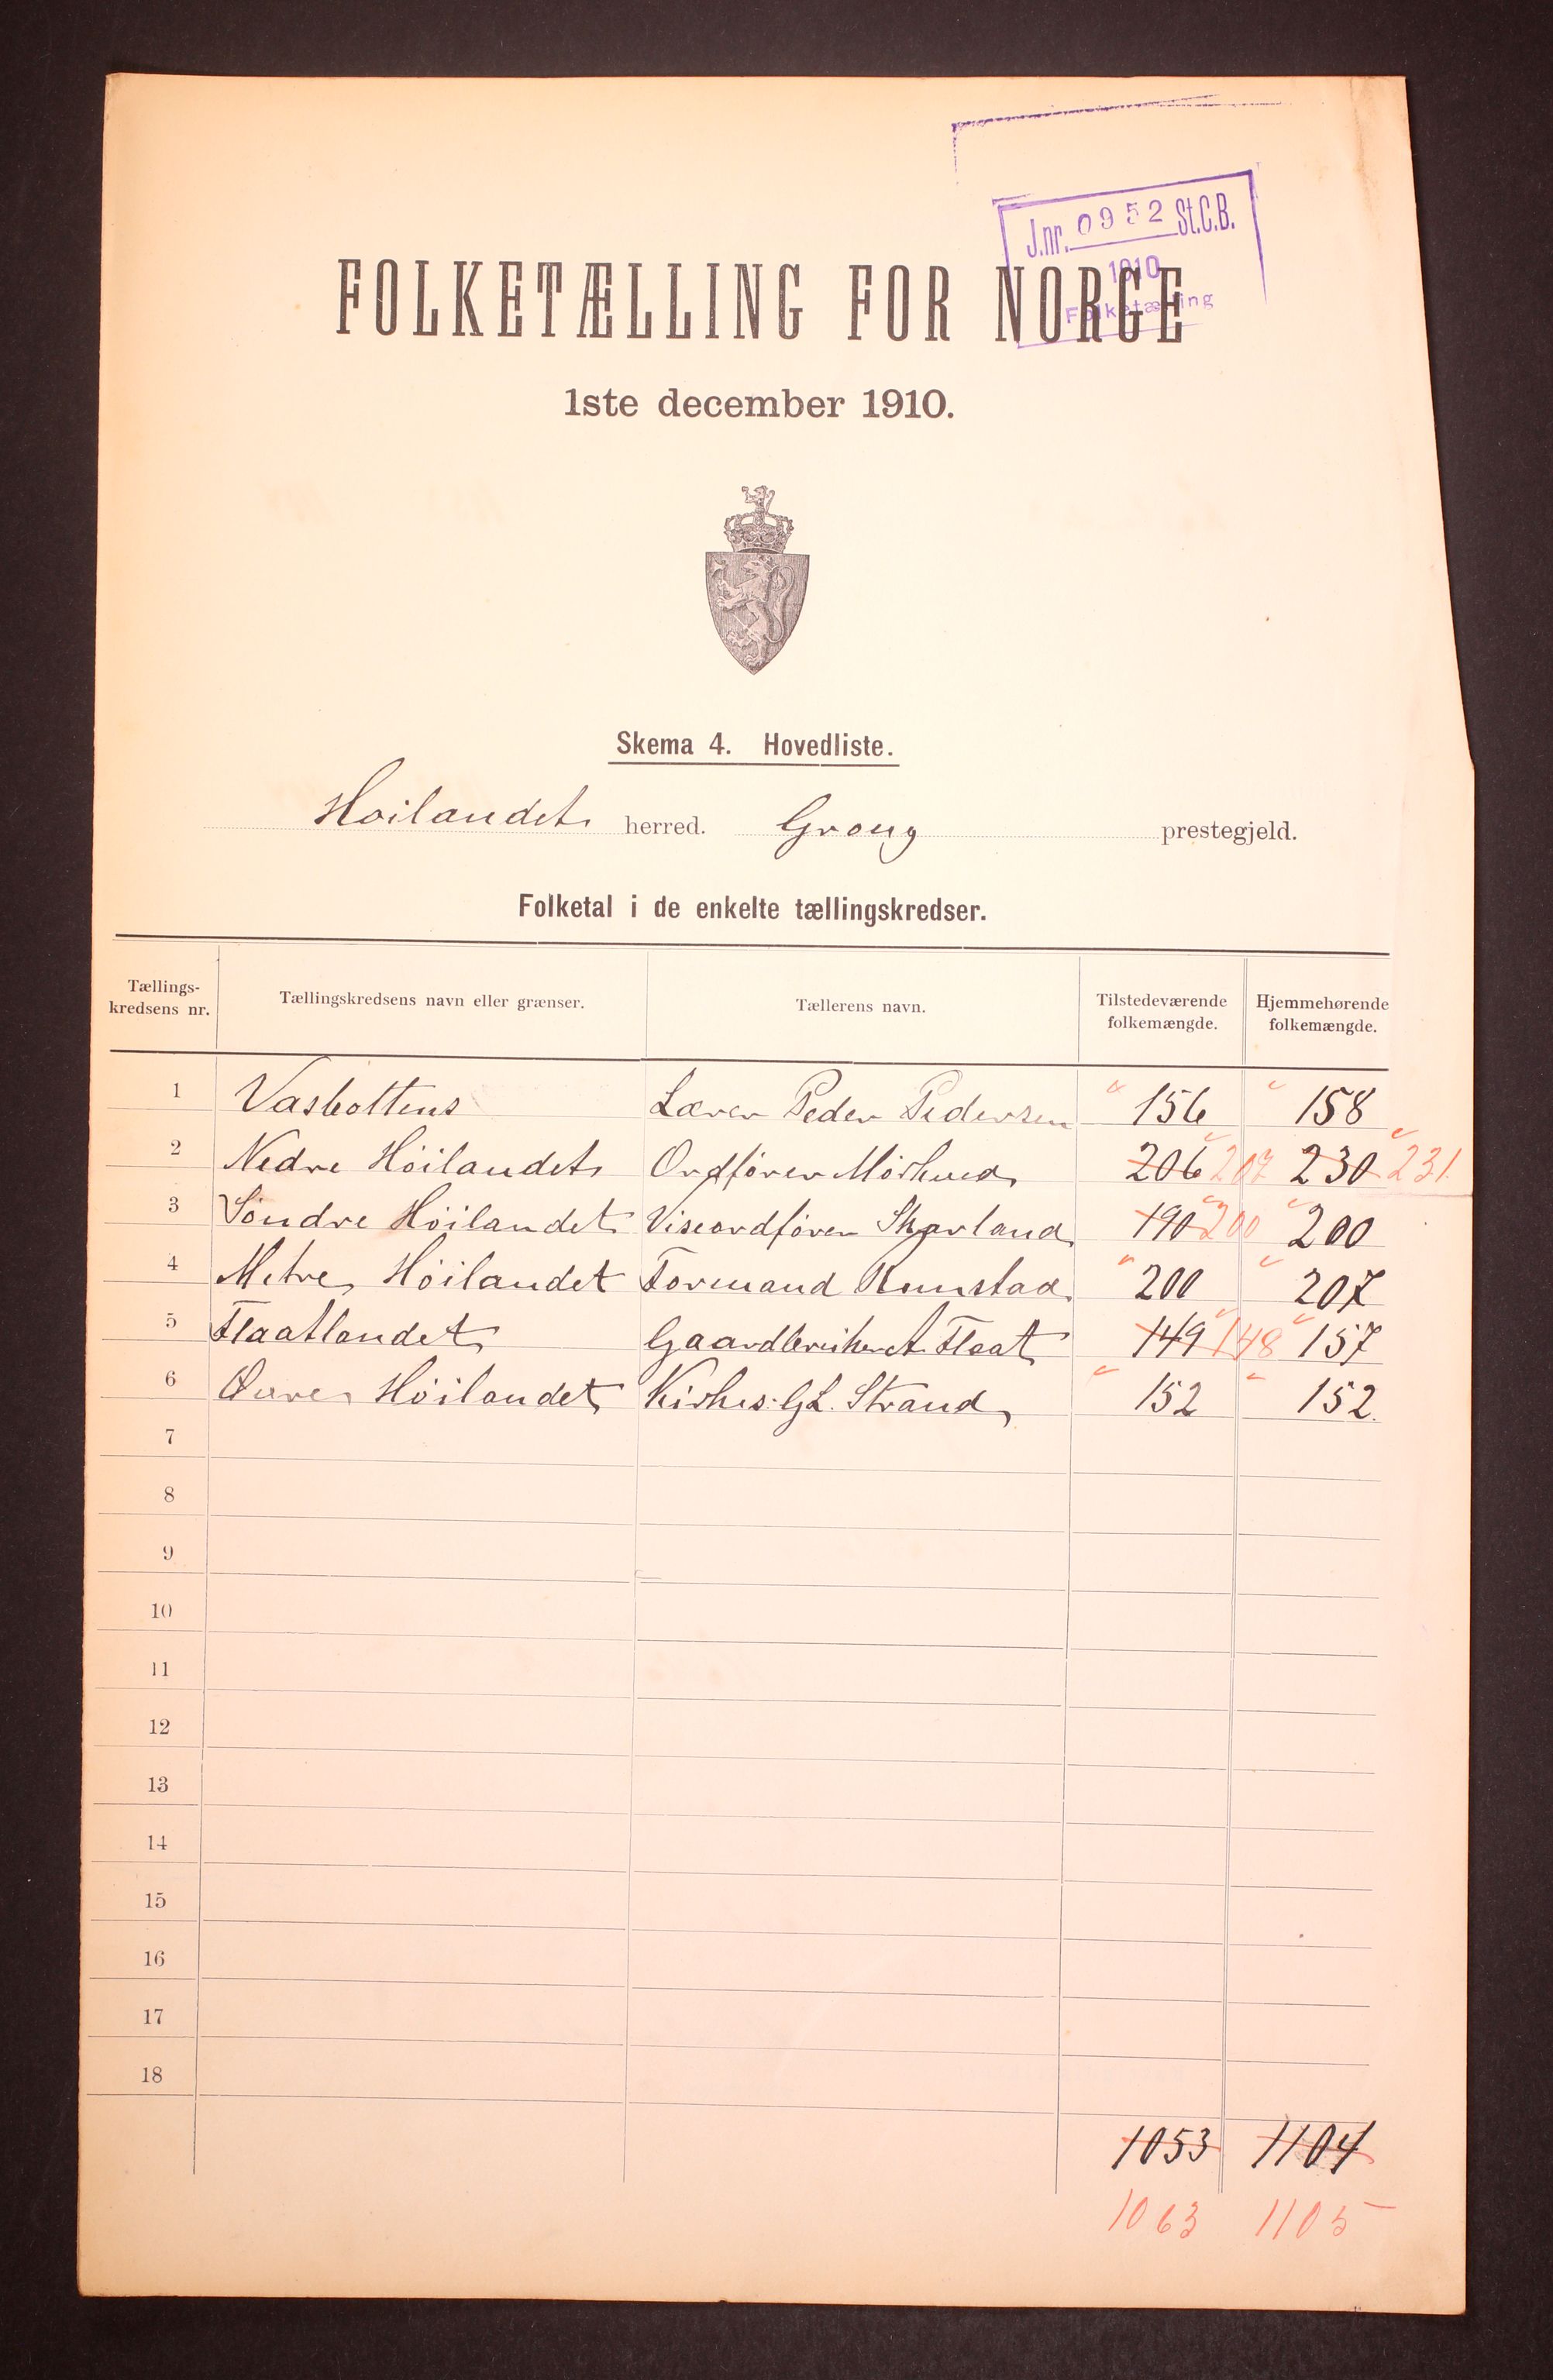 J.nr. 0952 St.C.B.
1910
Folketælling
FOLKETÆLLING FOR NORGE
1ste december 1910.
Skema 4. Hovedliste.
Höilandets herred. Grong prestegjeld.
Folketal i de enkelte tællingskredser.
Tællings-kredsens nr. Tællingskredsens navn eller grænser. Tællerens navn. Tilstedeværende folkemængde. Hjemmehørende folkemængde.
1 Vasbottens Lærer Peder Pedersen 156 158
2 Nedre Höilandets Ordförer Mörkved 206 207 230 231
3 Söndre Höilandet Viseordförer Skarland 190 200 200
4 Metre Höilandet Formand Kunstad 200 207
5 Flaatlandet Flaat 149 148 157
6 Övre Höilandet Kirkes. G.L. Strand 152 152
7
8
9
10
11
12
13
14
15
16
17
18
1053 1104
1063 1105